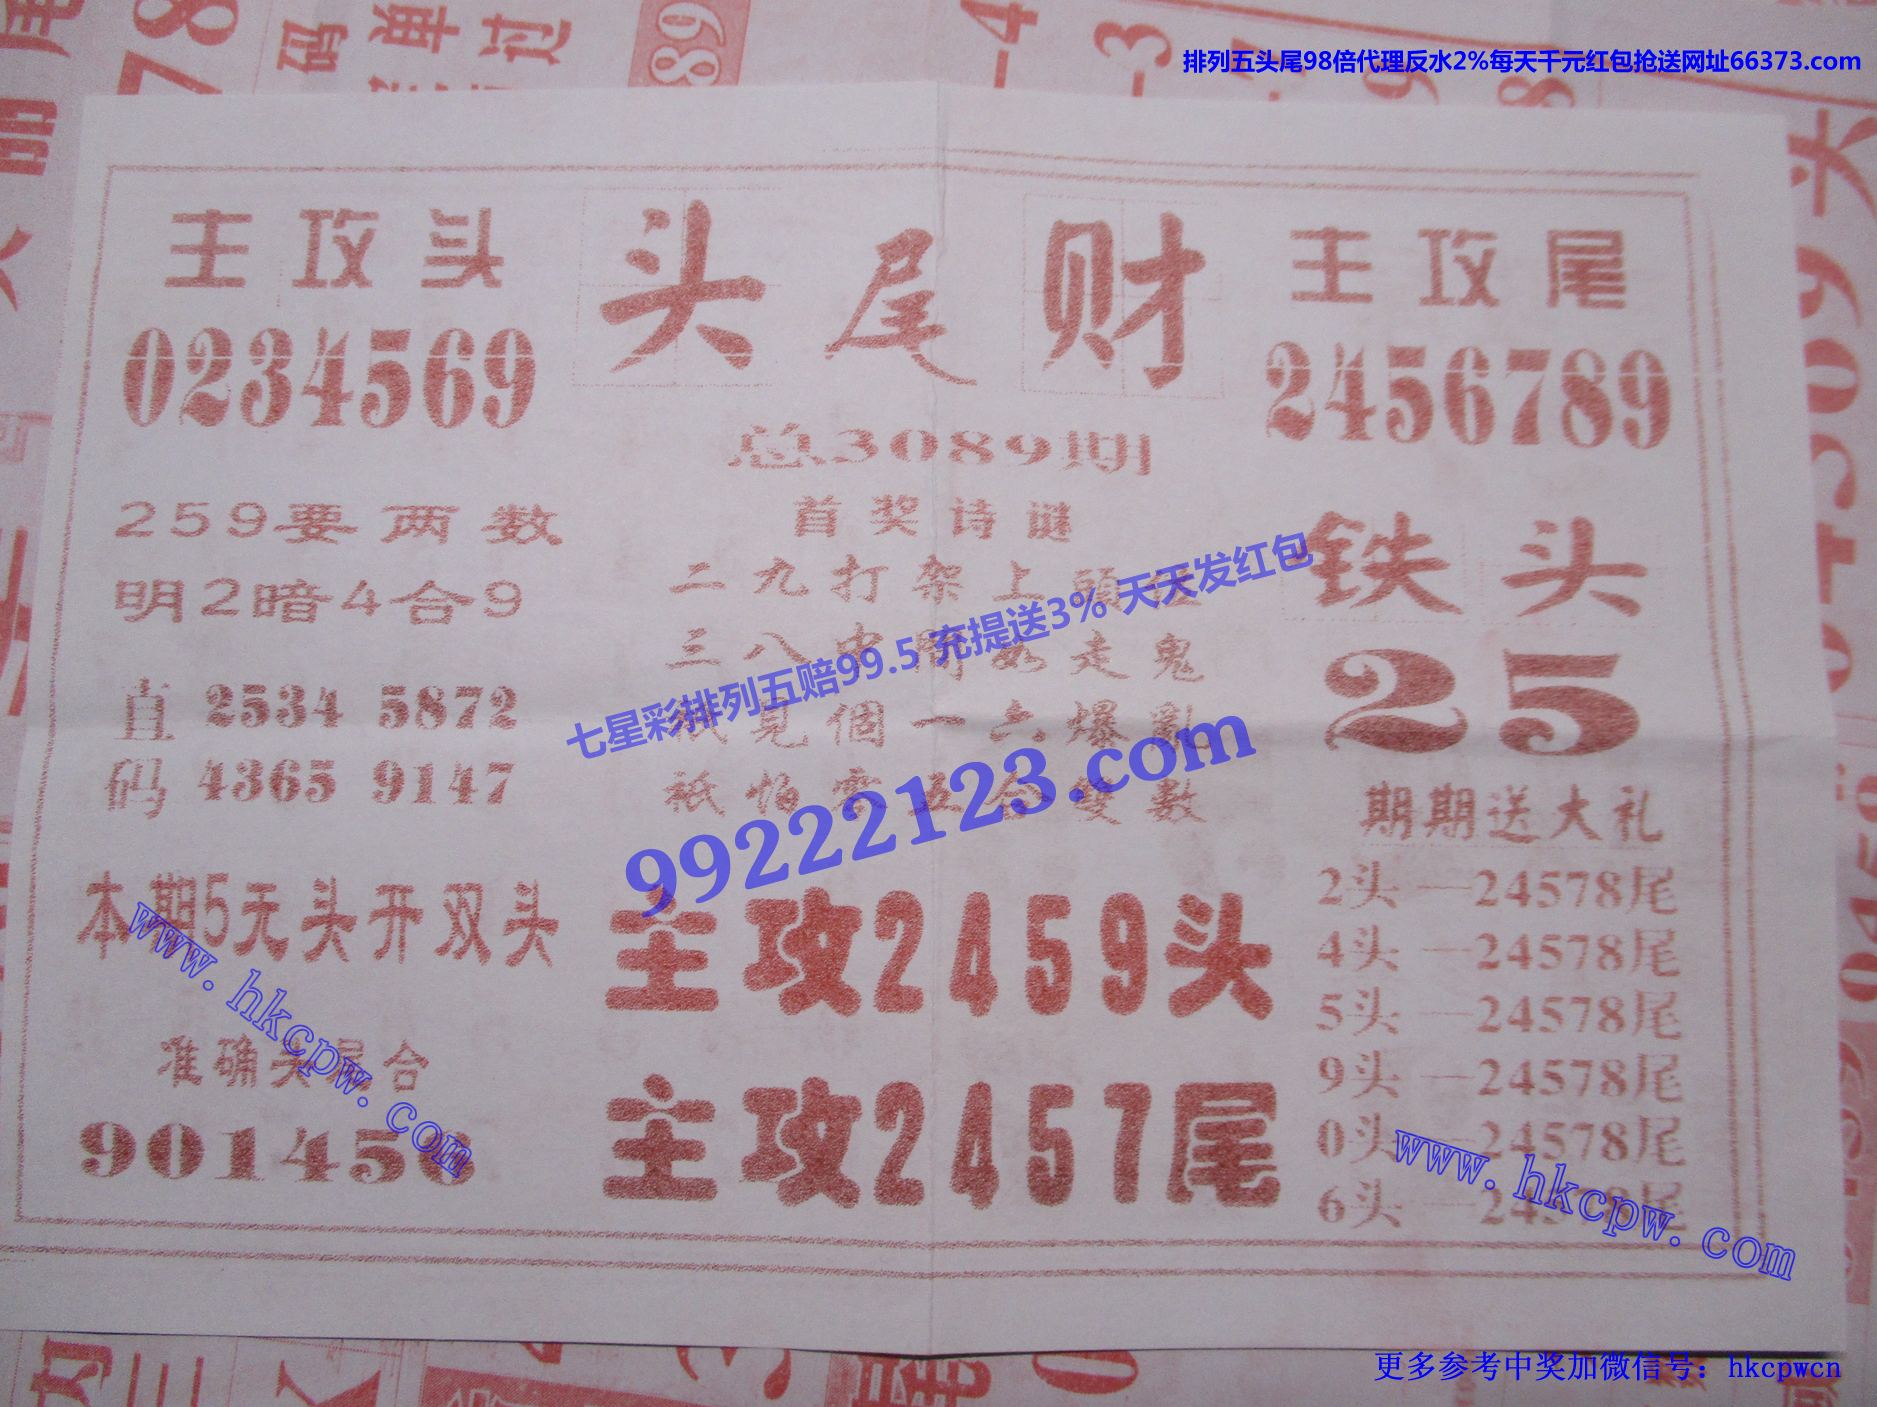 排列五头尾98倍代理反水2%每天千元红包抢送网址66373.com
码 单 过
89
主攻头
0234569
头尾财
主攻尾
2456789
总3089期
首奖诗谜
二九打架上頭
三八中間如走鬼
祇見個一六爆亂
祇怕零五合雙數
259要两数
明2暗4合9
直 2534 5872
码 4365 9147
铁头
25
期期送大礼
七星彩排列五赔99.5 充提送3% 天天发红包
99222123.com
本期5无头开双头
准确头尾合
901456
主攻2459头
主攻2457尾
2头 —24578尾
4头 —24578尾
5头 —24578尾
9头 —24578尾
0头 —24578尾
6头 —24578尾
www.hkcpw.com
www.hkcpw.com
更多参考中奖加微信号：hkcpwcn